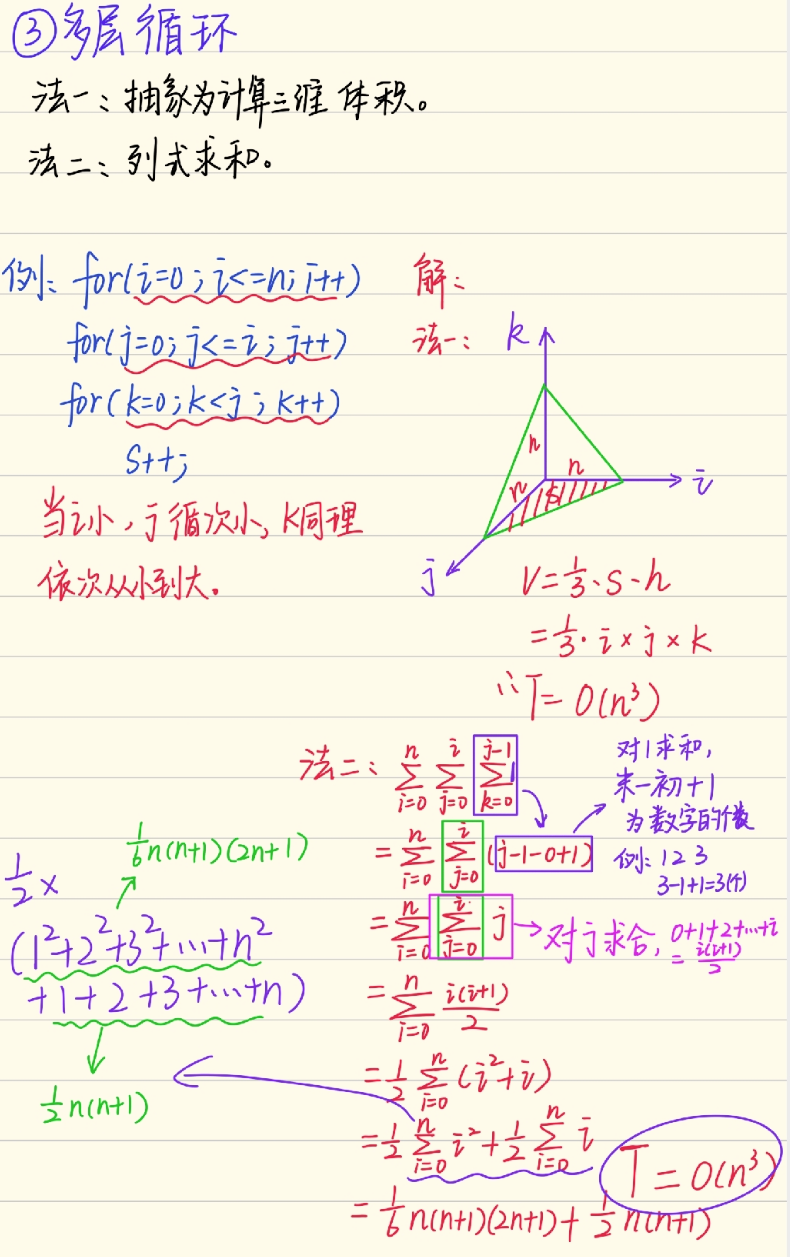 ③多层循环
法一：抽象为计算三维体积。
法二：列式求和。
例：for(i=0；i<=n；i++)
for(j=0；j<=i；j++)
for(k=0；k<j；k++)
S++；
当i小，j循次小，K同理
依次从小到大。
解：
法一：
k
n
n
n
S
i
j
V=1/3·S·h
=1/3·i×j×k
∴T=O(n³)
法二：∑(i=0→n) ∑(j=0→i) ∑(k=0→j-1) 1
对1求和，
末-初+1
为数字的个数
例：1 2 3
3-1+1=3(个)
=∑(i=0→n) ∑(j=0→i) (j-1-0+1)
=∑(i=0→n) ∑(j=0→i) j
对j求合，0+1+2+…+i
=i(i+1)/2
=∑(i=0→n) i(i+1)/2
=1/2 ∑(i=0→n) (i²+i)
=1/2 ∑(i=0→n) i²+1/2 ∑(i=0→n) i
=1/6 n(n+1)(2n+1)+1/2 n(n+1)
T=O(n³)
1/6 n(n+1)(2n+1)
1/2×
(1²+2²+3²+…+n²
+1+2+3+…+n)
1/2 n(n+1)